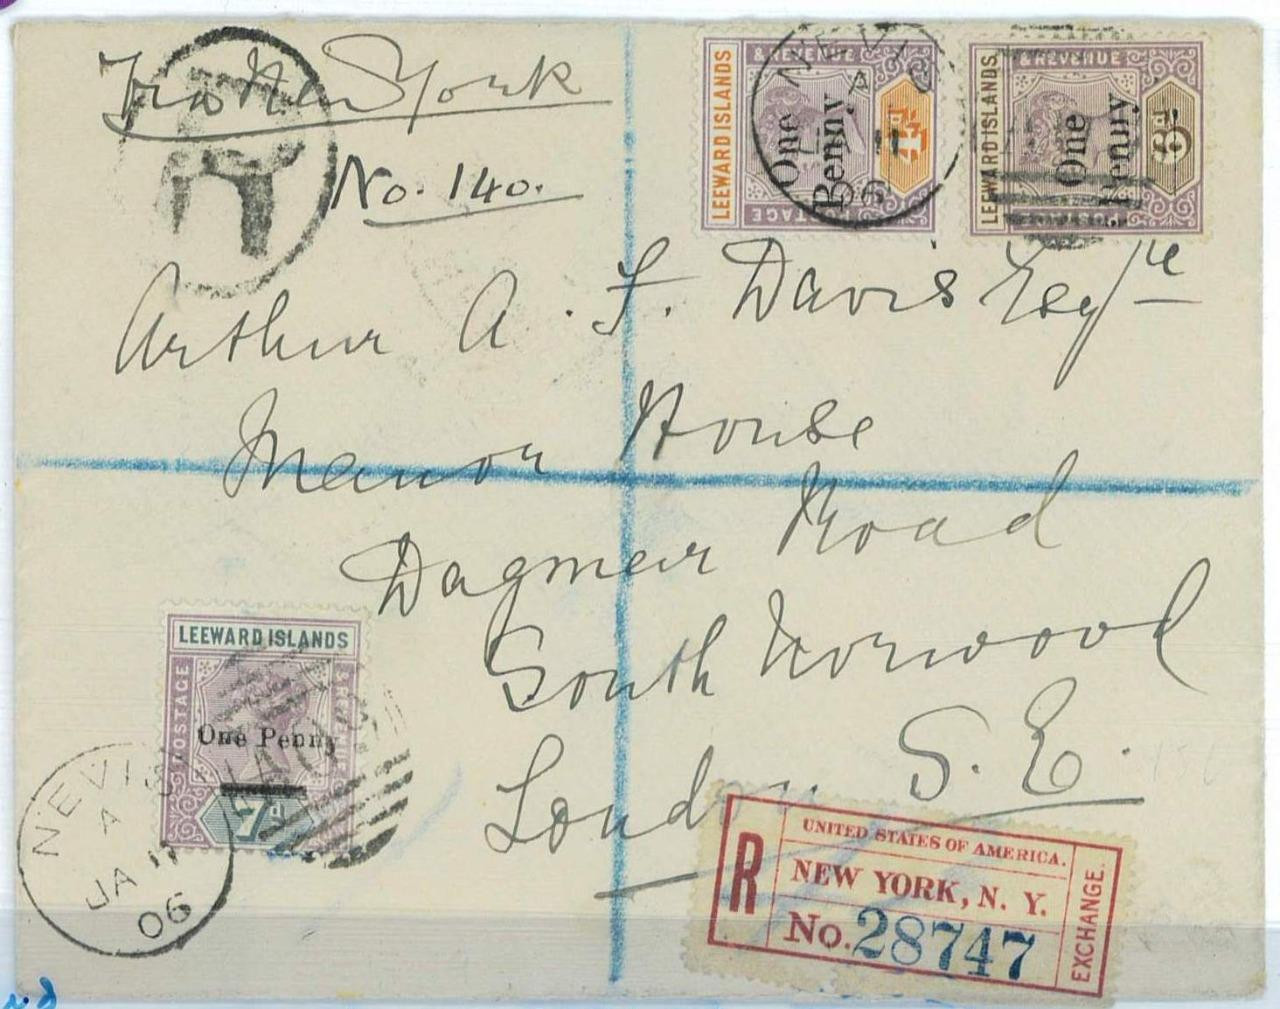 Via New York
No. 140.
R
LEEWARD ISLANDS
& REVENUE
POSTAGE
One Penny
4d
NEVIS
A
11
06
LEEWARD ISLANDS
& REVENUE
POSTAGE
One Penny
6d
Arthur A. F. Davis Esqre
Manor House
Dagmar Road
South Norwood
London S.E.
LEEWARD ISLANDS
POSTAGE
& REVENUE
One Penny
7d
A09
NEVIS
A
JA 11
06
R
UNITED STATES OF AMERICA.
NEW YORK, N. Y.
No. 28747
EXCHANGE.